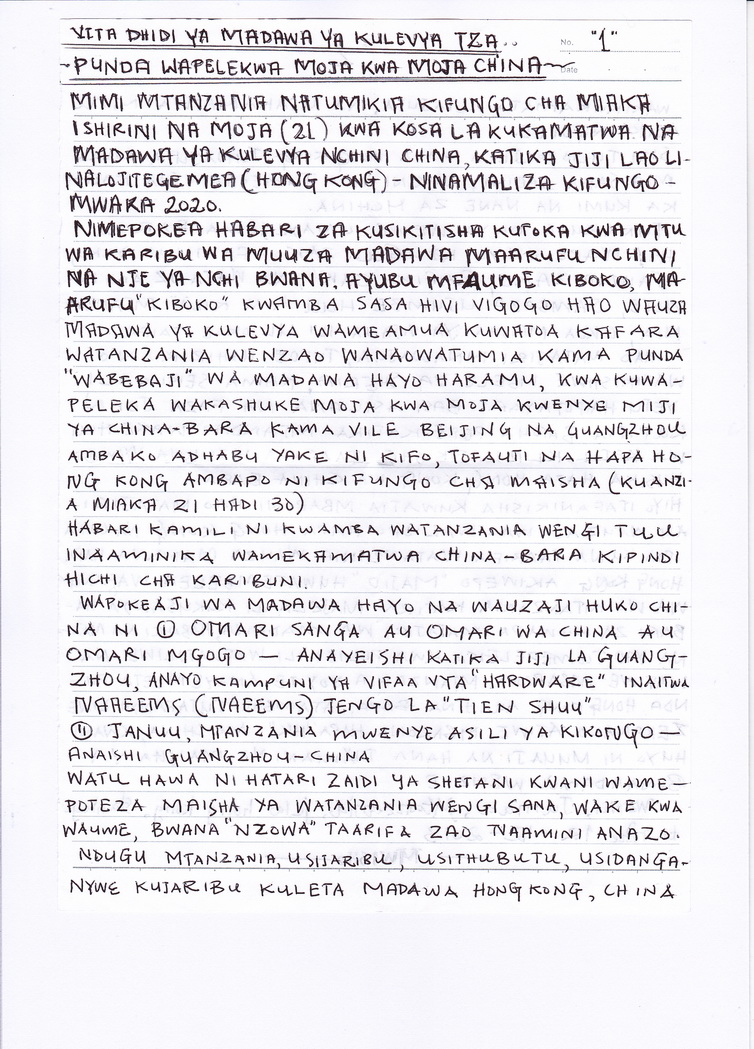 VITA DHIDI YA MADAWA YA KULEVYA TZA.. No. "1"
~PUNDA WAPELEKWA MOJA KWA MOJA CHINA~ Date
MIMI MTANZANIA NATUMIKIA KIFUNGO CHA MIAKA
ISHIRINI NA MOJA (21) KWA KOSA LA KUKAMATWA NA
MADAWA YA KULEVYA NCHINI CHINA, KATIKA JIJI LAO LI-
NALOJITEGEMEA (HONG KONG) - NINAMALIZA KIFUNGO -
MWAKA 2020.
NIMEPOKEA HABARI ZA KUSIKITISHA KUTOKA KWA MTU
WA KARIBU WA MUUZA MADAWA MAARUFU NCHINI
NA NJE YA NCHI BWANA. AYUBU MFAUME KIBOKO, MA-
ARUFU "KIBOKO" KWAMBA SASA HIVI VIGOGO HAO WAUZA
MADAWA YA KULEVYA WAMEAMUA KUWATOA KAFARA
WATANZANIA WENZAO WANAOWATUMIA KAMA PUNDA
"WABEBAJI" WA MADAWA HAYO HARAMU, KWA KUWA-
PELEKA WAKASHUKE MOJA KWA MOJA KWENYE MIJI
YA CHINA-BARA KAMA VILE BEIJING NA GUANGZHOU
AMBAKO ADHABU YAKE NI KIFO, TOFAUTI NA HAPA HO-
NG KONG AMBAPO NI KIFUNGO CHA MAISHA (KUANZI-
A MIAKA 21 HADI 30)
HABARI KAMILI NI KWAMBA WATANZANIA WENGI TUU
INAAMINIKA WAMEKAMATWA CHINA-BARA KIPINDI
HICHI CHA KARIBUNI.
WAPOKEAJI WA MADAWA HAYO NA WAUZAJI HUKO CHI-
NA NI ① OMARI SANGA AU OMARI WA CHINA AU
OMARI MGOGO — ANAYEISHI KATIKA JIJI LA GUANG-
ZHOU, ANAYO KAMPUNI YA VIFAA VYA "HARDWARE" INAITWA
NAREEMS (NAEEMS) JENGO LA "TIEN SHUU"
⑪ JANUU, MTANZANIA MWENYE ASILI YA KIKONGO —
ANAISHI GUANGZHOU - CHINA
WATU HAWA NI HATARI ZAIDI YA SHETANI KWANI WAME-
POTEZA MAISHA YA WATANZANIA WENGI SANA, WAKE KWA
WAUME, BWANA "NZOWA" TAARIFA ZAO NAAMINI ANAZO.
NDUGU MTANZANIA, USIJARIBU, USITHUBUTU, USIDANGA-
NYWE KUJARIBU KULETA MADAWA HONG KONG, CHINA